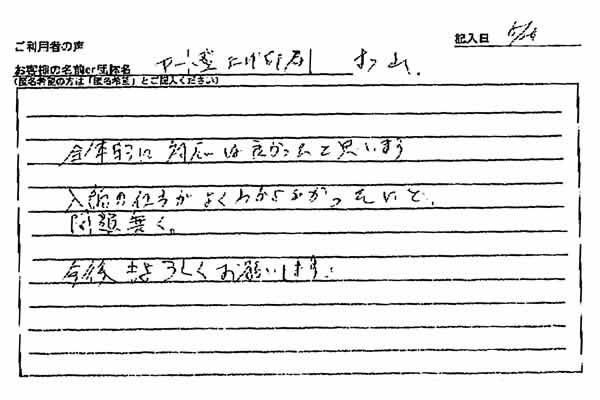 ご利用者の声
記入日 5/26
お客様の名前or団体名
(匿名希望の方は「匿名希望」とご記入ください)
全体的に 対応は良かったと思います
入稿の仕方がよくわからなかったけど、
問題無く。
今後共よろしくお願いします。